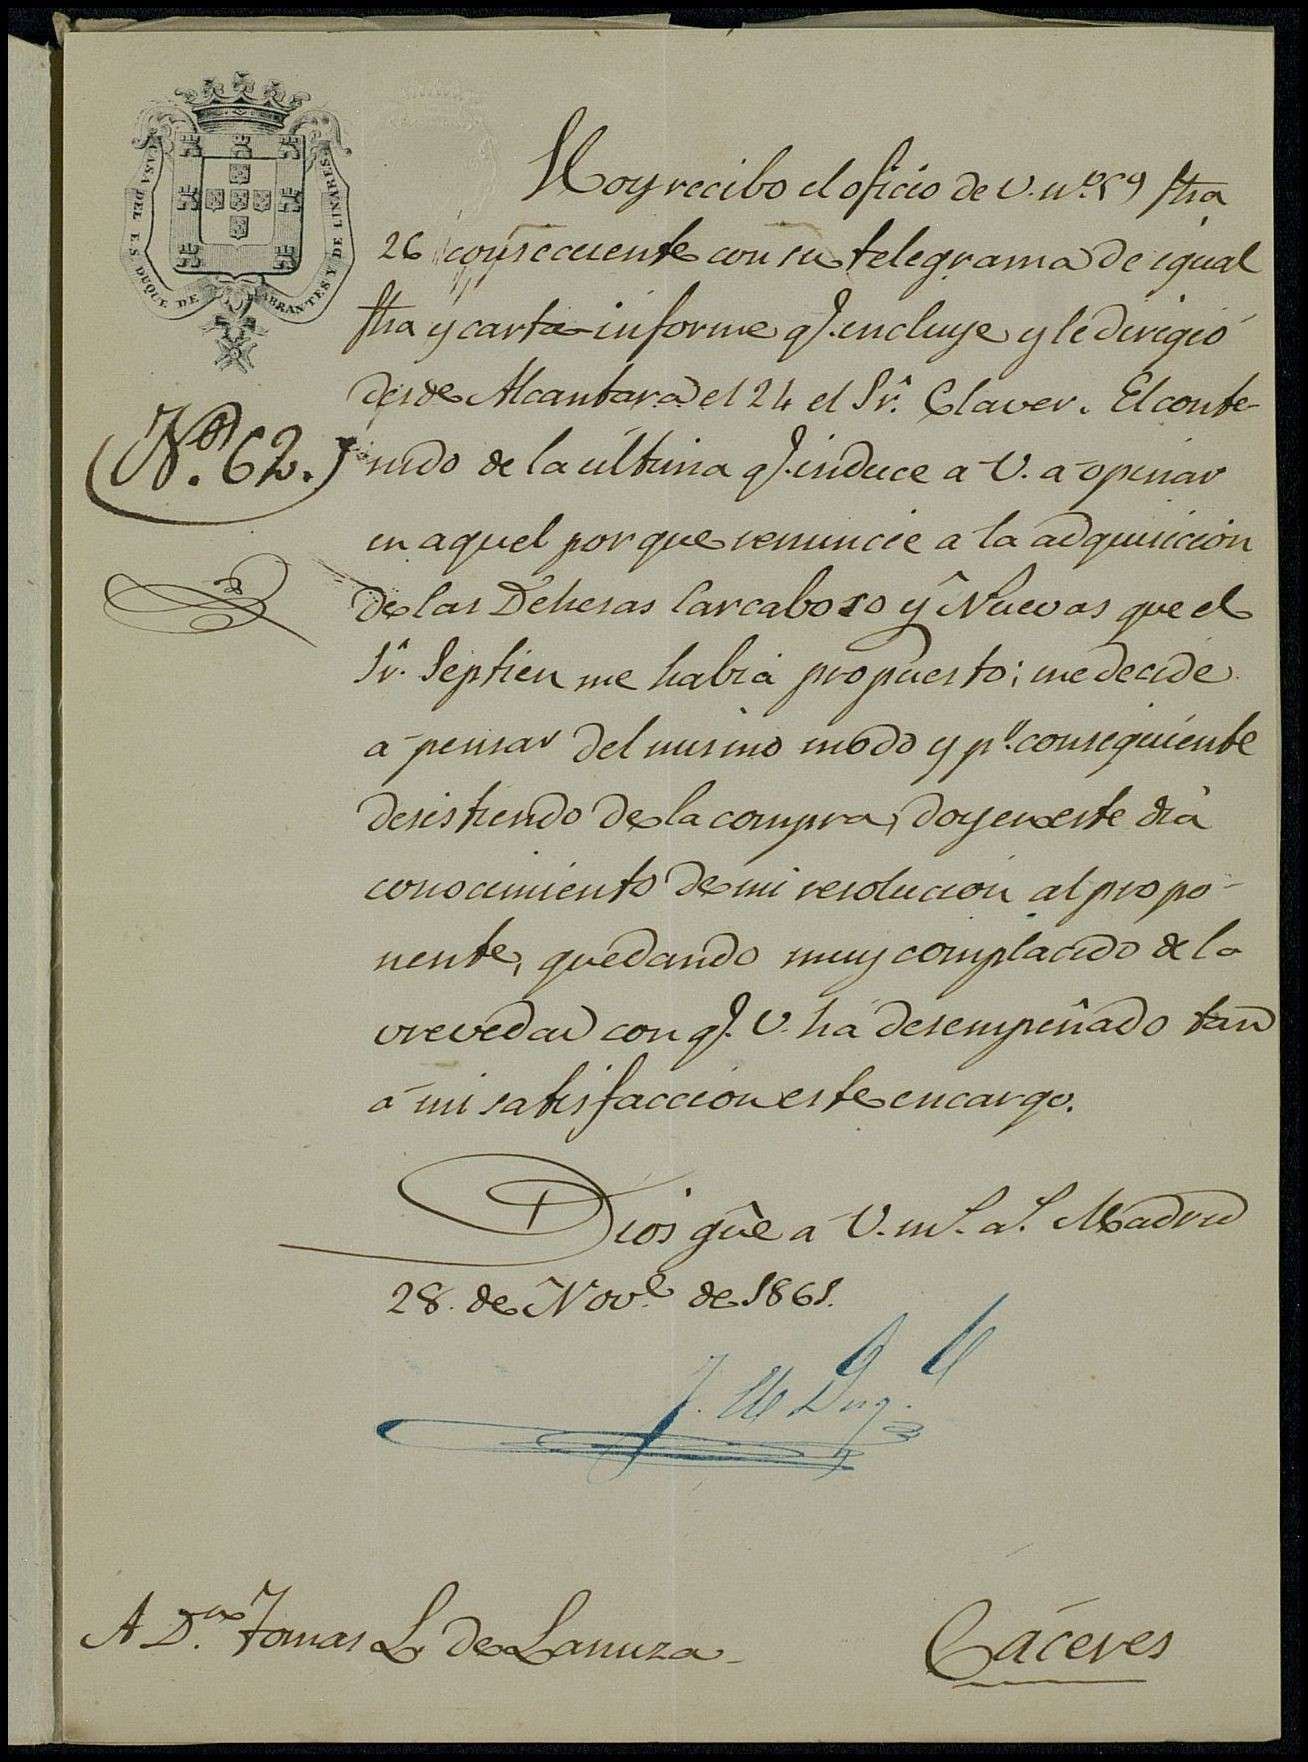 CASA DEL E. S. DUQUE DE ABRANTES Y DE LINARES
Hoy recibo el oficio de V. nº 59 fha
26 consecuente con su telegrama de igual
fha y carta-informe q. incluye y le dirigió
desde Alcantara el 24 el Sr. Claver. El conte-
(Nº. 62.)
nido de la última q. induce a V. a opinar
en aquel por que renuncie a la adquisicion
de las Dehesas Carcaboso y Nuevas que el
Sr. Septien me habia propuesto; me decide
a pensar del mismo modo y pr. consiguiente
desistiendo de la compra, doy en este dia
conocimiento de mi resolucion al propo-
nente, quedando muy complacido de la
vrevedad con q. V. ha desempeñado tan
á mi satisfaccion este encargo.
Dios gûe a V. ms. as. Madrid
28. de Nove. de 1861.
A Dn. Tomas L. de Lanuza
Cáceres